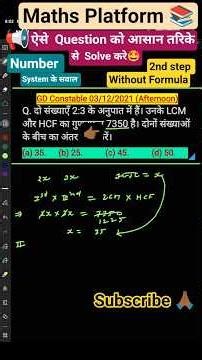 Maths Platform 📚
📢 ऐसे Question को आसान तरिके
से Solve करे🤩
Number
System के सवाल
2nd step
Without Formula
GD Constable 03/12/2021 (Afternoon)
Q. दो संख्याएँ 2:3 के अनुपात में हैं। उनके LCM
और HCF का गुणनफल 7350 है। दोनों संख्याओं
के बीच का अंतर
(a) 35. (b) 25. (c) 45. (d) 50.
2x 3x
Ist x IInd = LCM x HCF
⇒ 2x x 3x = 7350
1225
x = 35
Subscribe 🙏🏽